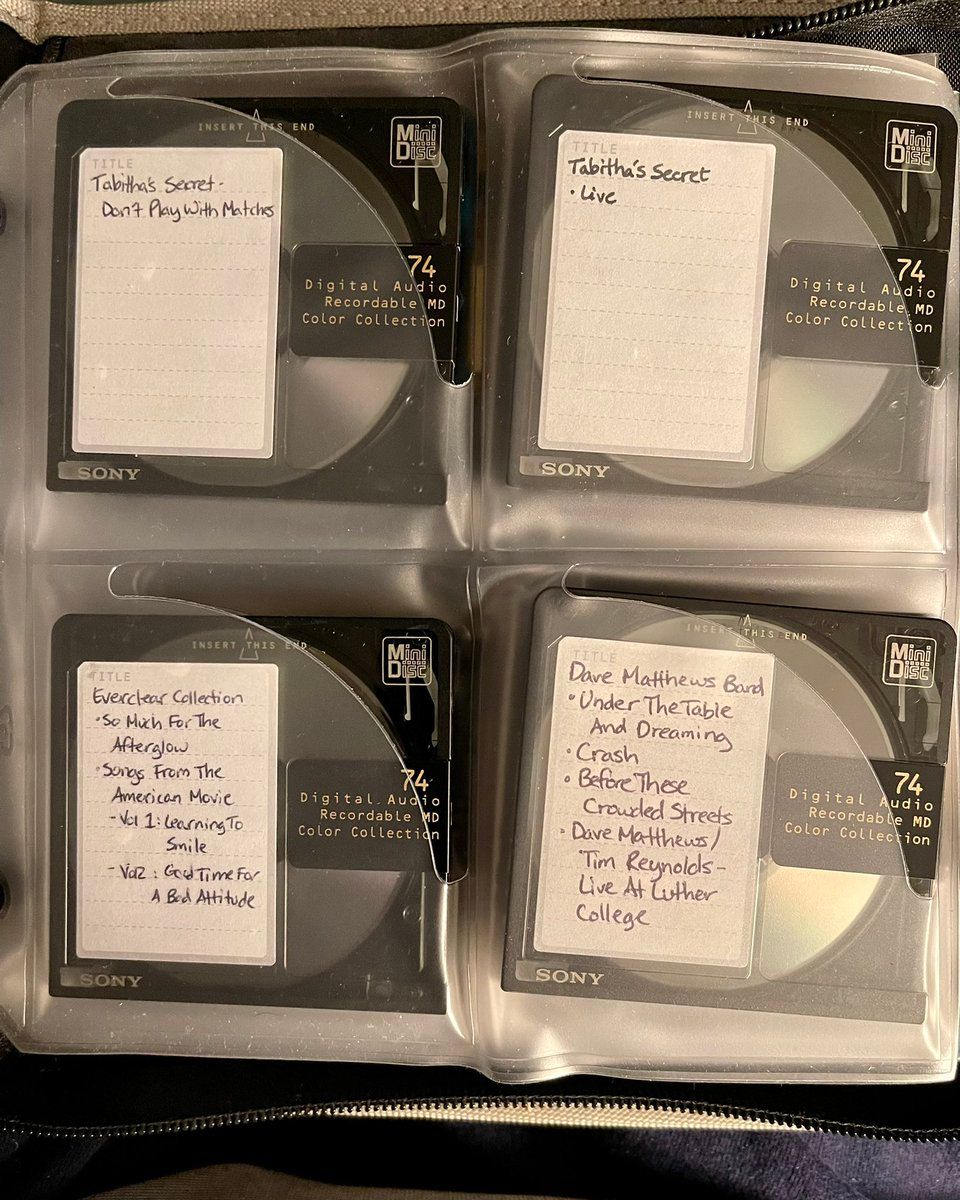 INSERT THIS END
Mini
Disc
TITLE
Tabitha's Secret -
Don't Play With Matches
74
Digital Audio
Recordable MD
Color Collection
SONY
INSERT THIS END
Mini
Disc
TITLE
Tabitha's Secret
• Live
74
Digital Audio
Recordable MD
Color Collection
SONY
INSERT THIS END
Mini
Disc
TITLE
Everclear Collection
• So Much For The
Afterglow
• Songs From The
American Movie
- Vol 1: Learning To
Smile
- Vol 2: Good Time For
A Bad Attitude
74
Digital Audio
Recordable MD
Color Collection
SONY
INSERT THIS END
Mini
Disc
TITLE
Dave Matthews Band
• Under The Table
And Dreaming
• Crash
• Before These
Crowded Streets
• Dave Matthews/
Tim Reynolds -
Live At Luther
College
74
Digital Audio
Recordable MD
Color Collection
SONY